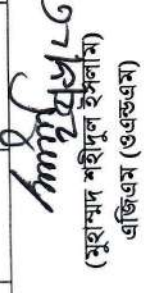 (মুহাম্মদ শহীদুল ইসলাম)
এজিএম (ওএন্ডএম)